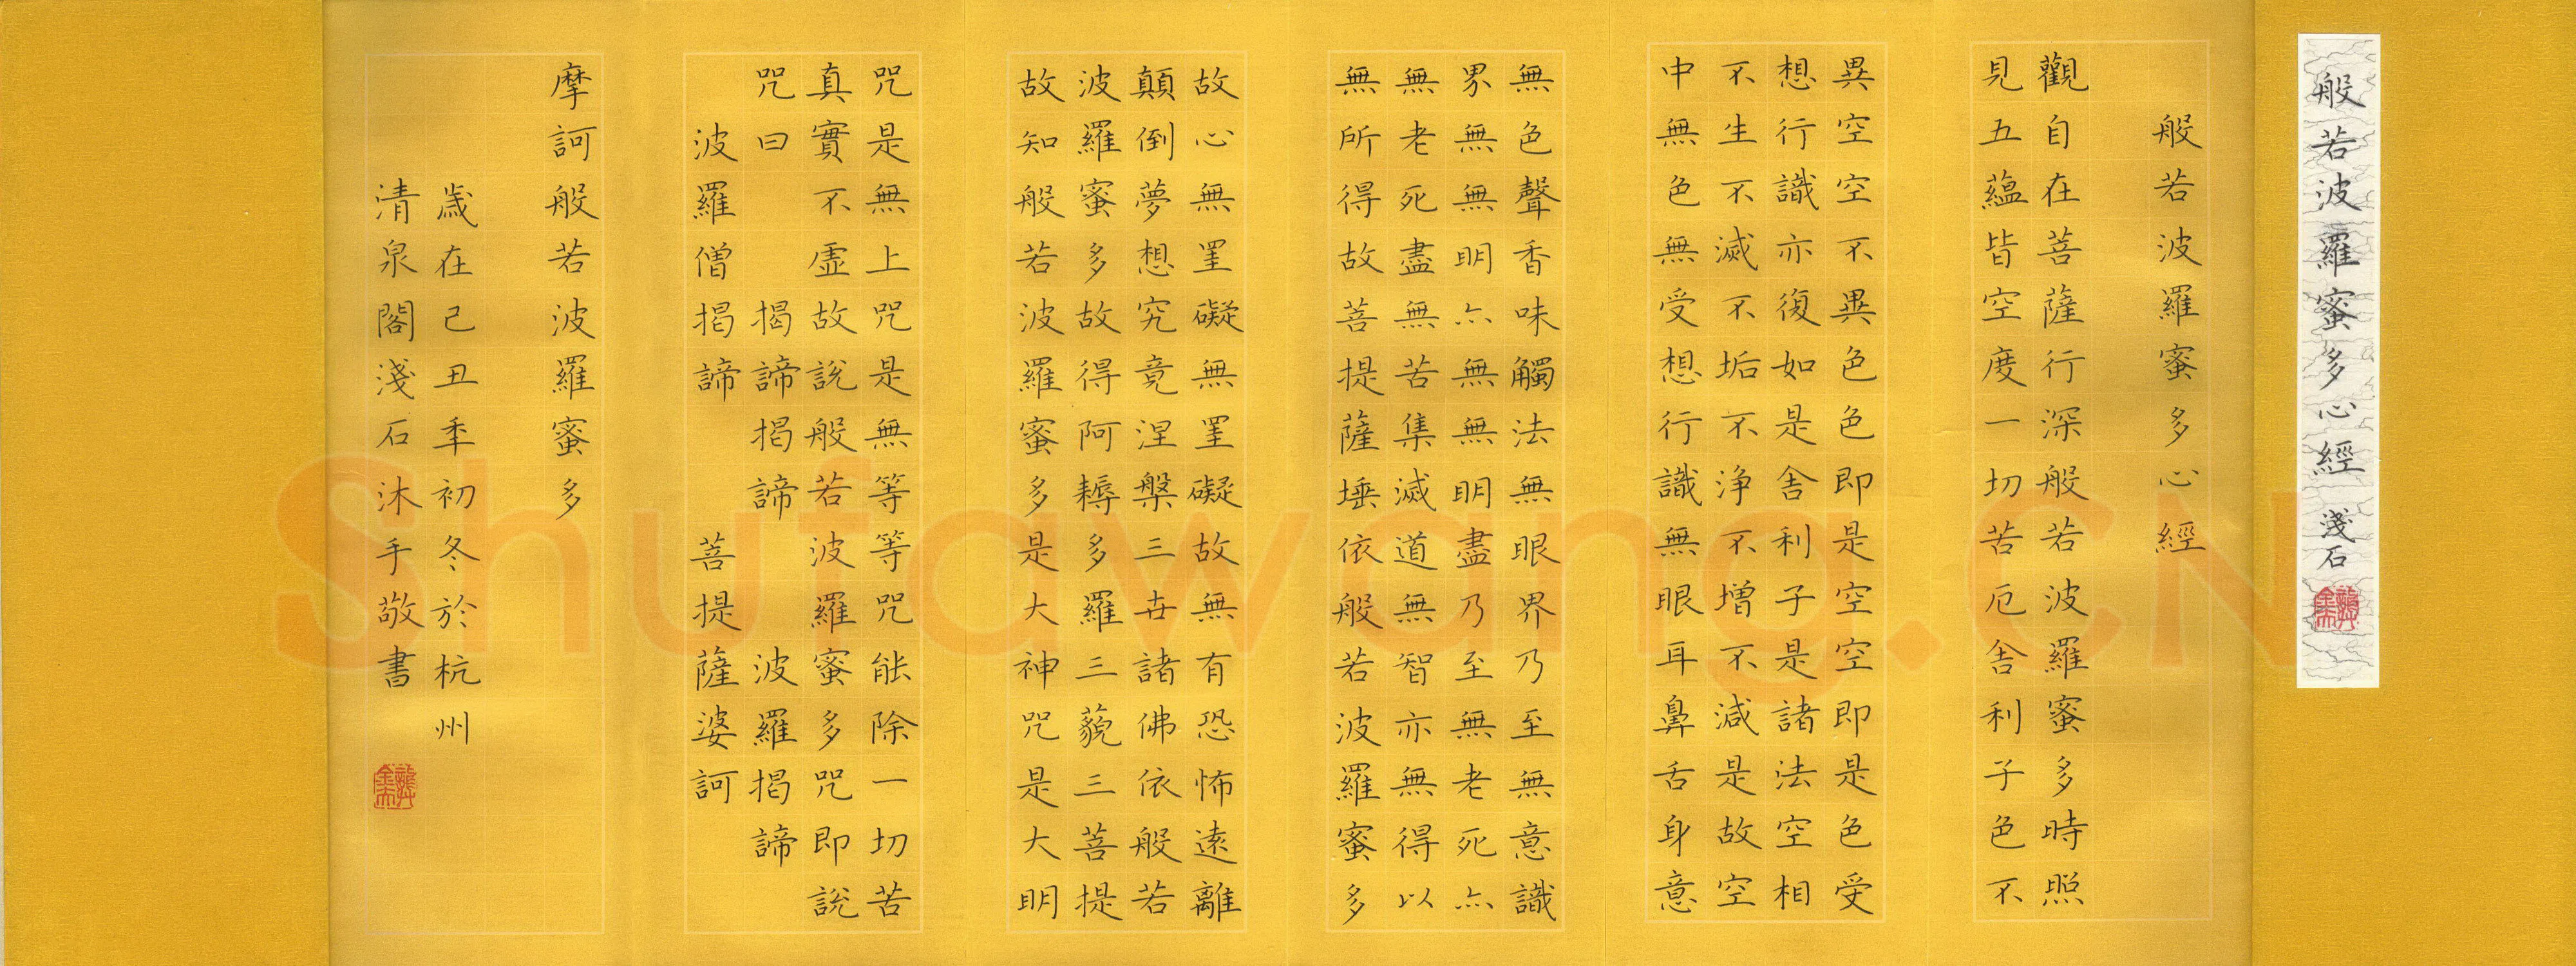 般若波羅蜜多心經 淺石
般若波羅蜜多心經
觀自在菩薩行深般若波羅蜜多時照
見五蘊皆空度一切苦厄舍利子色不
異空空不異色色即是空空即是色受
想行識亦復如是舍利子是諸法空相
不生不滅不垢不淨不增不減是故空
中無色無受想行識無眼耳鼻舌身意
無色聲香味觸法無眼界乃至無意識
界無無明亦無無明盡乃至無老死亦
無老死盡無苦集滅道無智亦無得以
無所得故菩提薩埵依般若波羅蜜多
故心無罣礙無罣礙故無有恐怖遠離
顛倒夢想究竟涅槃三世諸佛依般若
波羅蜜多故得阿耨多羅三藐三菩提
故知般若波羅蜜多是大神咒是大明
咒是無上咒是無等等咒能除一切苦
真實不虛故說般若波羅蜜多咒即說
咒曰 揭諦揭諦 波羅揭諦
波羅僧揭諦 菩提薩婆訶
摩訶般若波羅蜜多
歲在己丑年初冬於杭州
清泉閣淺石沐手敬書
Shufawang.CN